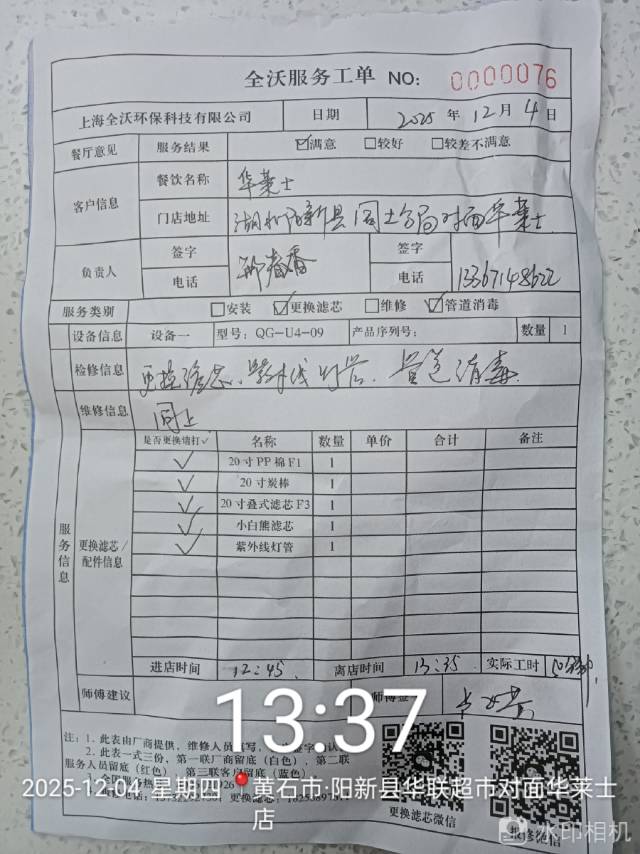 全沃服务工单 NO: 0000076
上海全沃环保科技有限公司 日期 2025 年 12 月 4 日
餐厅意见 服务结果 ☑满意 □较好 □较差不满意
客户信息 餐饮名称 华莱士
门店地址 湖北阳新县国土分局对面华莱士
负责人 签字 签字
电话 电话 13367148622
服务类别 □安装 ☑更换滤芯 □维修 ☑管道消毒
设备信息 设备一 型号: QG-U4-09 产品序列号: 数量 1
检修信息 更换滤芯、紫外线灯管、管道消毒
维修信息 同上
服务信息
更换滤芯/配件信息
是否更换请打✓ 名称 数量 单价 合计 备注
✓ 20寸PP棉F1 1
✓ 20寸炭棒 1
✓ 20寸叠式滤芯F3 1
✓ 小白熊滤芯 1
✓ 紫外线灯管 1
进店时间 12:45 离店时间 13:35 实际工时 50分钟
师傅建议 师傅签
13:37
注: 1. 此表由厂商提供, 维修人员填写,
2. 此表一式三份, 第一联厂商留底(白色), 第二联
服务人员留底(红色) 第三联客户留底(蓝色)
2025-12-04 星期四 黄石市·阳新县华联超市对面华莱士店
更换滤芯微信 报修微信
水印相机